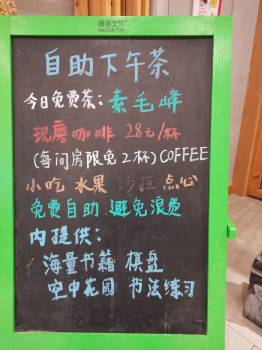 微信支付
WeChat Pay
自助下午茶
今日免费茶：素毛峰
现磨咖啡 28元/杯
(每间房限免2杯)COFFEE
小吃 水果 沙拉 点心
免费自助 避免浪费
内提供：
海量书籍 棋盘
空中花园 书法练习